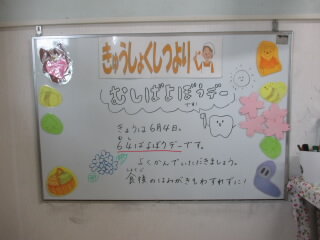 きゅうしょくしつより
むしばよぼうデー
きょうは6月4日。
む し
64ばよぼうデーです。
よくかんでいただきましょう。
しょくご
食後のはみがきもわすれずに!